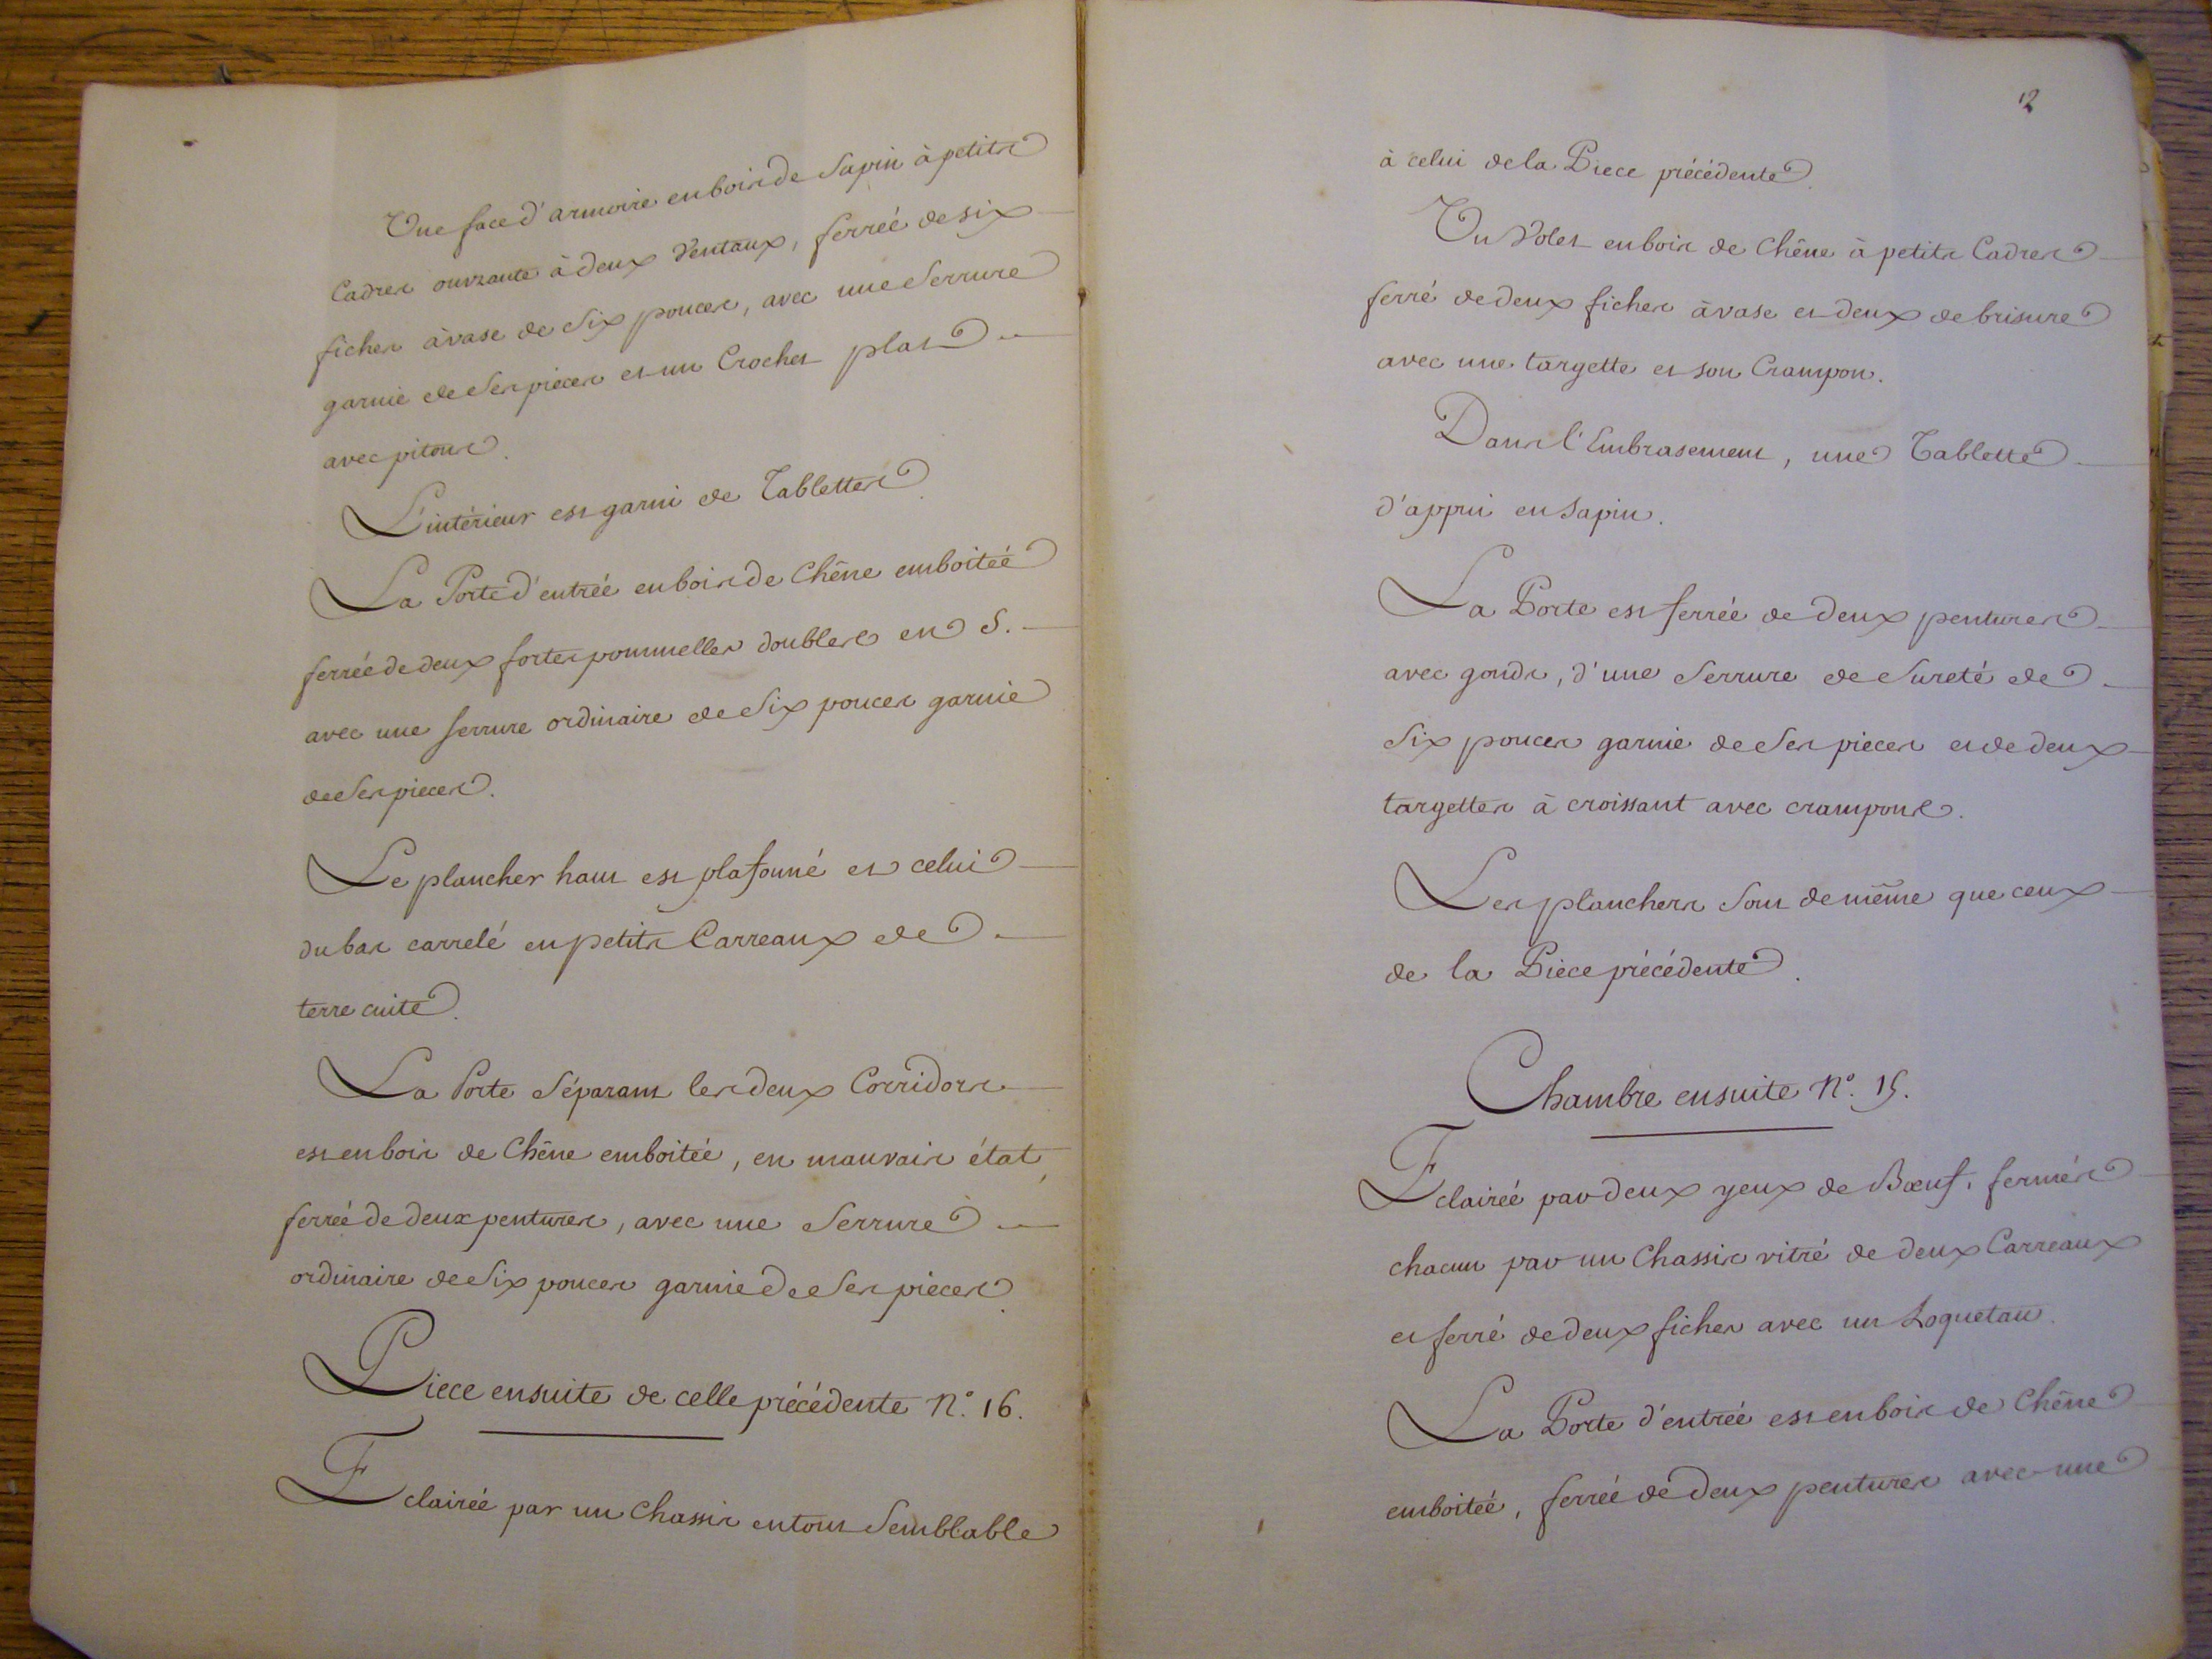 Une face d'armoire en bois de Sapin à petits
Cadres ouvrante à deux Ventaux, ferrée de six
fiches à vase de Six pouces, avec une Serrure
garnie de Ses pieces et un Crochet plat
avec pitons.
L'intérieur est garni de Tablettes.
La Porte d'entrée en bois de Chêne emboitée
ferrée de deux fortes pommelles doubles en S.
avec une serrure ordinaire de Six pouces garnie
de Ses pieces.
Le plancher haut est plafonné et celui
du bas carrelé en petits Carreaux de
terre cuite.
La Porte Séparant les deux Corridors
est en bois de Chêne emboitée, en mauvais état,
ferrée de deux pentures, avec une Serrure
ordinaire de Six pouces garnie de Ses pieces.
Piece ensuite de celle précédente N.º 16.
Eclairée par un Chassis en tout Semblable
12
à celui de la Piece précédente.
Un Volet en bois de Chêne à petits Cadres
ferré de deux fiches à vase et deux de brisure
avec une targette et son Crampon.
Dans l'Embrasement, une Tablette
d'appui en Sapin.
La Porte est ferrée de deux pentures
avec gonds, d'une Serrure de Sureté de
Six pouces garnie de Ses pieces et de deux
targettes à croissant avec crampons.
Les planchers Sont de même que ceux
de la Pièce précédente.
Chambre ensuite N.º 15.
Eclairée par deux yeux de Bœuf, fermés
chacun par un Chassis vitré de deux Carreaux
et ferré de deux fiches avec un Loquetau.
La Porte d'entrée est en bois de Chêne
emboitée, ferrée de deux pentures avec une